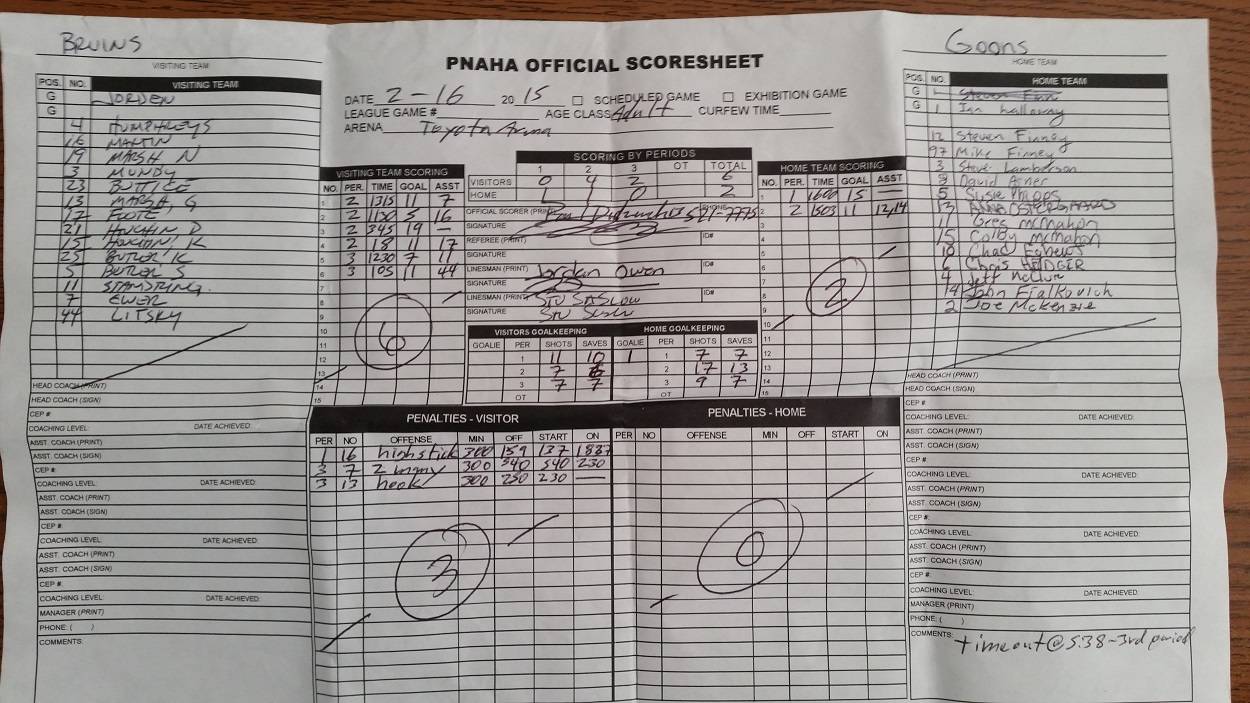 BRUINS
VISITING TEAM
POS. NO. VISITING TEAM
G JORDEN
G
4 HUMPHREYS
16 MARTIN
19 MARSH N
3 MUNDY
23 BUTTICE
13 MARSH, G
17 FOOTE
21 D
15 K
25 BUTLER K
5 BUTLER S
11 STAMSTRING
7 EWER
44 LITSKY
HEAD COACH (PRINT)
HEAD COACH (SIGN)
CEP #:
COACHING LEVEL: DATE ACHIEVED:
ASST. COACH (PRINT)
ASST. COACH (SIGN)
CEP #:
COACHING LEVEL: DATE ACHIEVED:
ASST. COACH (PRINT)
ASST. COACH (SIGN)
CEP #:
COACHING LEVEL: DATE ACHIEVED:
ASST. COACH (PRINT)
ASST. COACH (SIGN)
CEP #:
COACHING LEVEL: DATE ACHIEVED:
MANAGER (PRINT)
PHONE: ( )
COMMENTS:
PNAHA OFFICIAL SCORESHEET
DATE 2-16 2015 SCHEDULED GAME EXHIBITION GAME
LEAGUE GAME # AGE CLASS Adult CURFEW TIME
ARENA Toyota Arena
VISITING TEAM SCORING
NO. PER. TIME GOAL ASST
1 2 1315 11 7
2 2 1150 5 16
3 2 345 19 —
4 2 18 11 17
5 3 1230 7 11
6 3 105 11 44
7
8
9
10
11
12
13
14
15
6
SCORING BY PERIODS
1 2 3 OT TOTAL
VISITORS 0 4 2 6
HOME 1 1 0 2
OFFICIAL SCORER (PRINT) PHONE 521-7775
SIGNATURE
REFEREE (PRINT) ID#
SIGNATURE
LINESMAN (PRINT) Jordan Owen ID#
SIGNATURE
LINESMAN (PRINT) STU SASLOW ID#
SIGNATURE
VISITORS GOALKEEPING HOME GOALKEEPING
GOALIE PER SHOTS SAVES GOALIE PER SHOTS SAVES
1 11 10 1 1 7 7
2 7 6 2 17 13
3 7 7 3 9 7
OT OT
HOME TEAM SCORING
NO. PER. TIME GOAL ASST
1 1 1600 15 —
2 2 1503 11 12/14
3
4
5
6
7
8
9
10
11
12
13
14
15
2
PENALTIES - VISITOR
PER NO OFFENSE MIN OFF START ON
1 16 highstick 300 159 137 1837
3 7 2 mny 300 540 540 230
3 13 hook 300 250 230 —
3
PENALTIES - HOME
PER NO OFFENSE MIN OFF START ON
0
Goons
HOME TEAM
POS. NO. HOME TEAM
G 1 Steven Finn
G 1 Ian halloway
12 Steven Finney
97 Mike Finney
3 Steve Lamberson
9 David Asher
5 Susie Philps
13 ANNA OSTERGAARD
11 Greg McMahon
15 Colby McMahon
10 Chad
6 Chris HEDGER
4 Jeff McClure
14 John Fialkovich
2 Joe McKenzie
HEAD COACH (PRINT)
HEAD COACH (SIGN)
CEP #:
COACHING LEVEL: DATE ACHIEVED:
ASST. COACH (PRINT)
ASST. COACH (SIGN)
CEP #:
COACHING LEVEL: DATE ACHIEVED:
ASST. COACH (PRINT)
ASST. COACH (SIGN)
CEP #:
COACHING LEVEL: DATE ACHIEVED:
ASST. COACH (PRINT)
ASST. COACH (SIGN)
CEP #:
COACHING LEVEL: DATE ACHIEVED:
MANAGER (PRINT)
PHONE: ( )
COMMENTS: timeout@5:38-3rd period